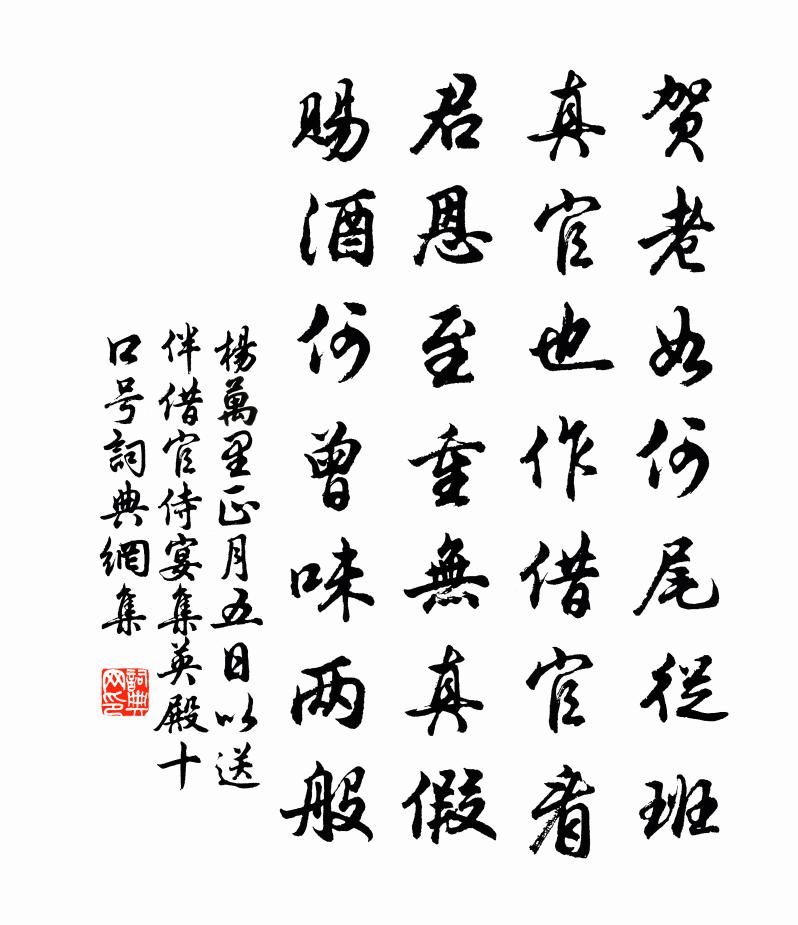 贺老如何尾從班
真官也作借官看
君恩至重無真假
賜酒何曾味两般
楊萬里正月五日以送
伴借官侍宴集英殿十
口号詞典網集
詞典
网印